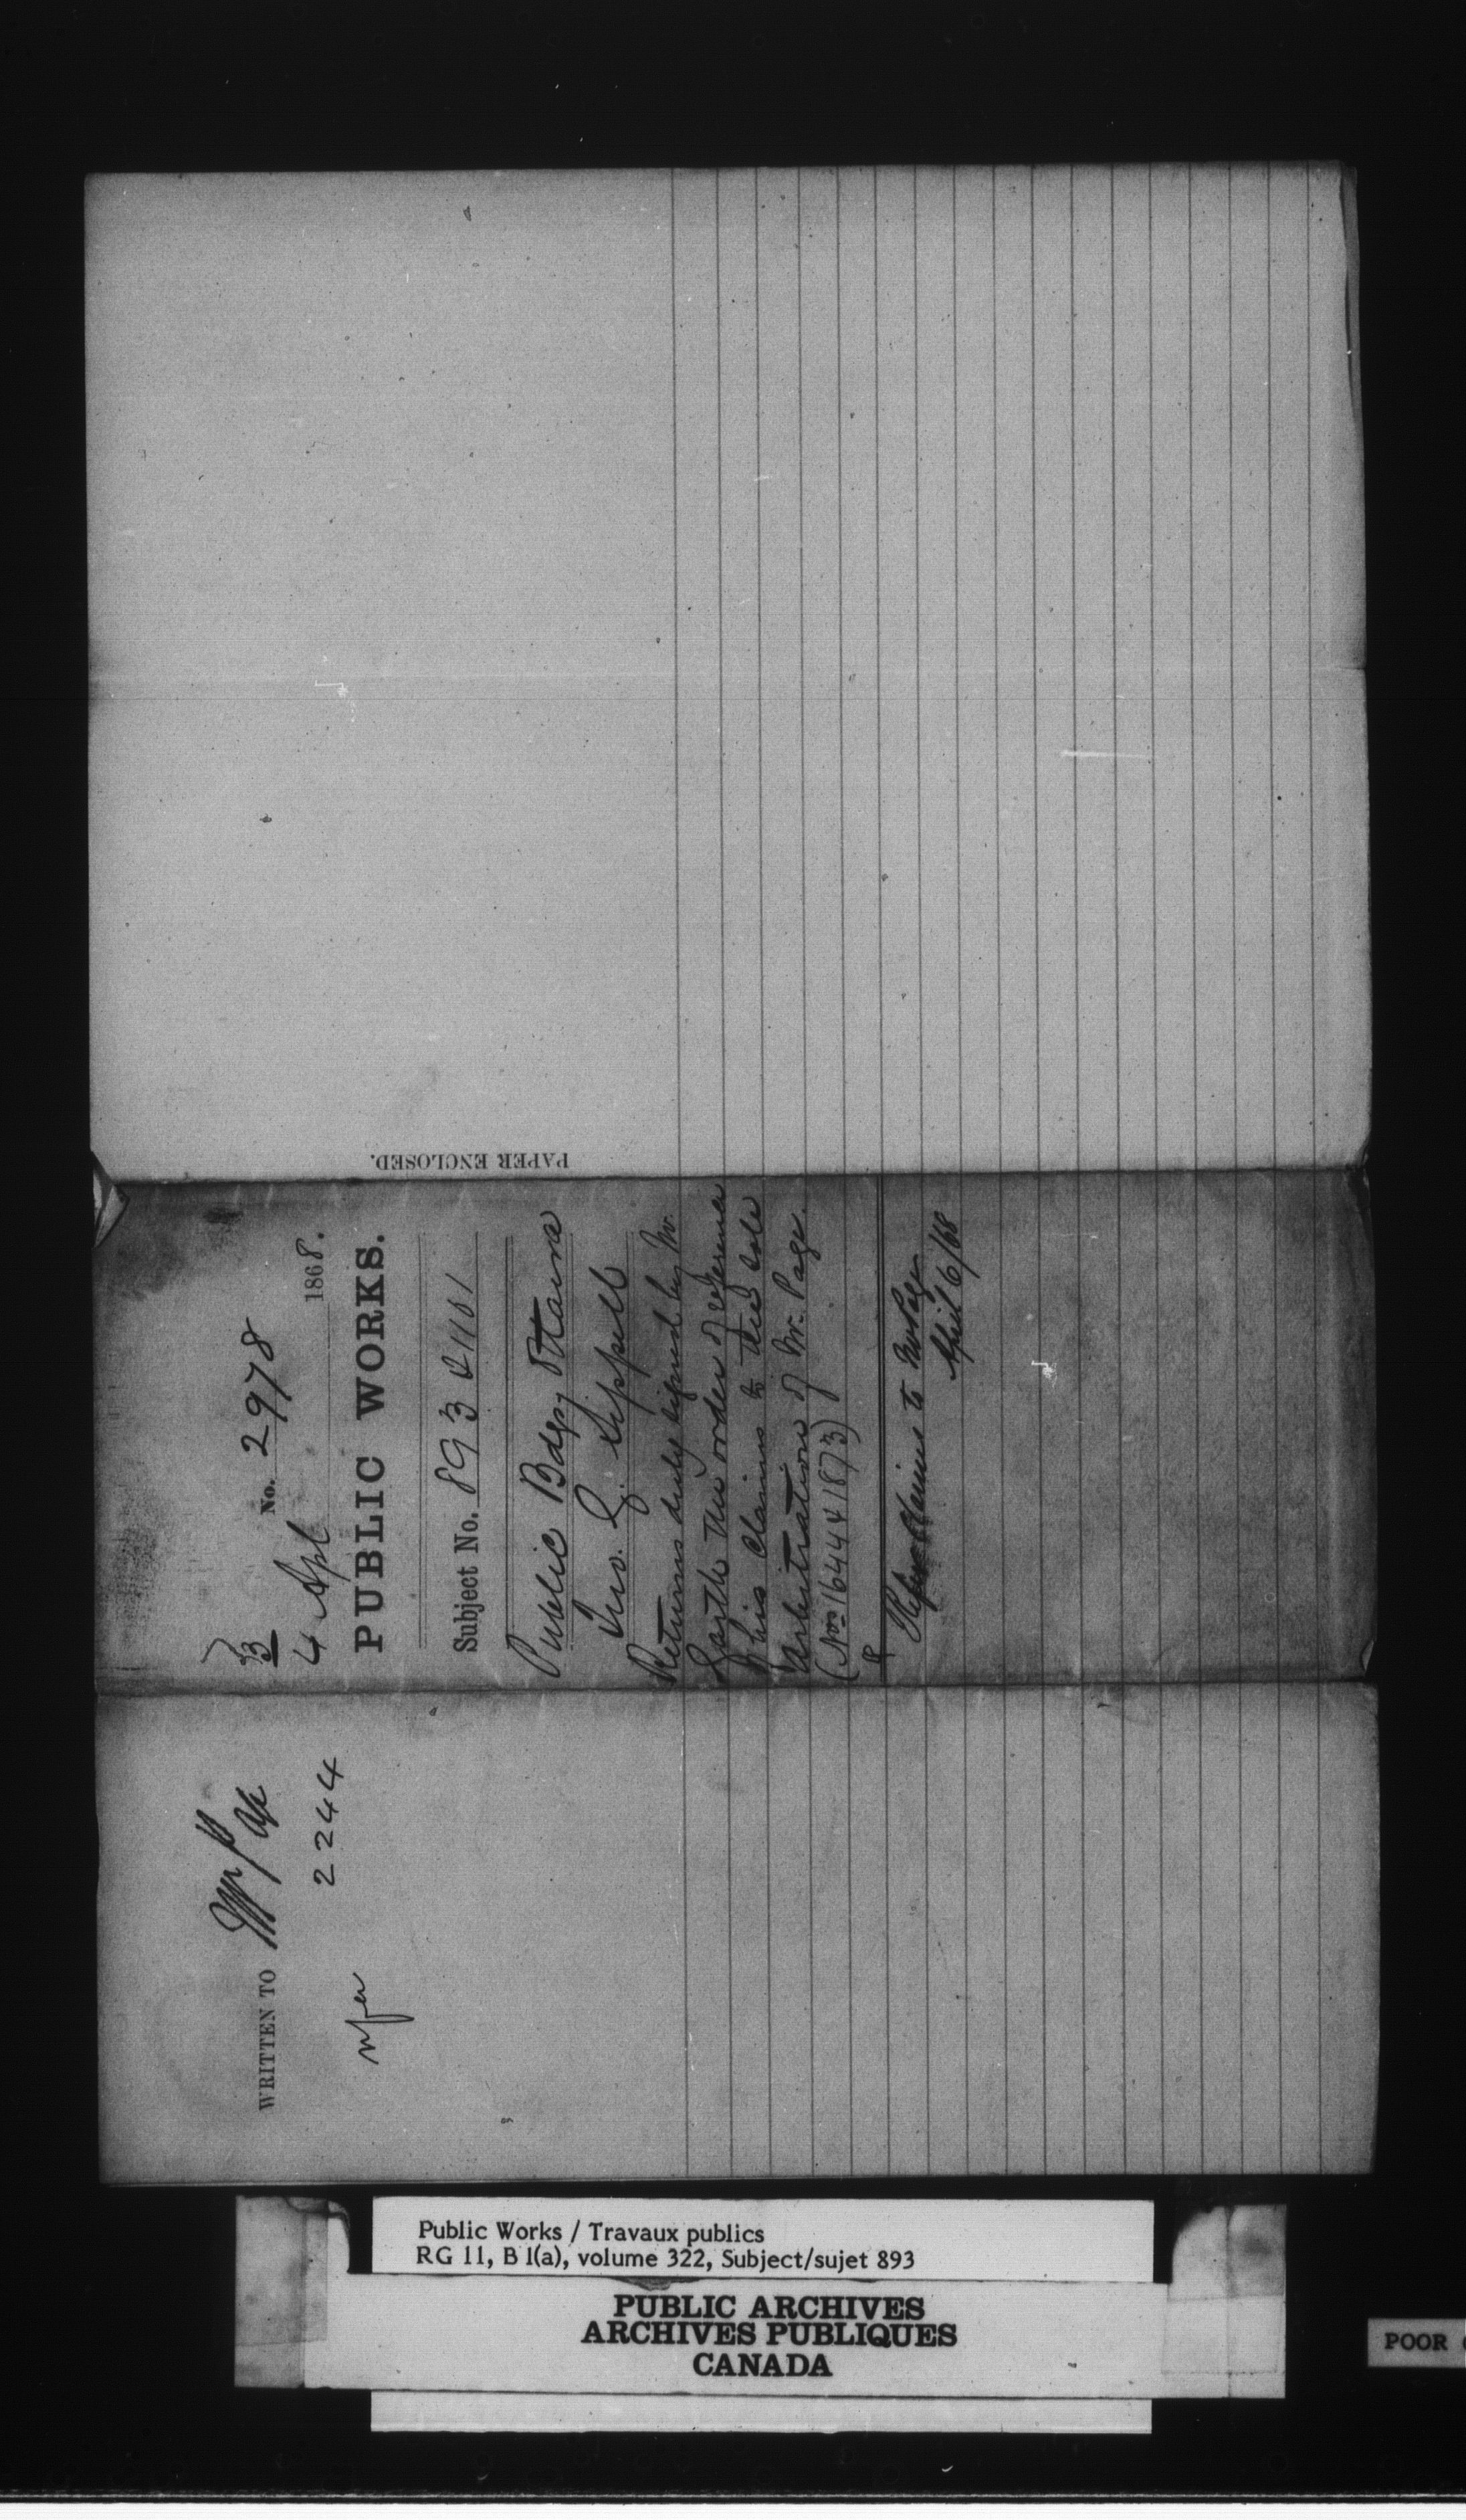 PAPER ENCLOSED.
33
No. 2978
4 Apl 1868.
PUBLIC WORKS.
Subject No. 893 & 1101
Public Bdgs, Ottawa
Jno. G. Sippell
Returns duly signed by Mr.
Garth the order of reference
of his claims to the sole
arbitration of Mr. Page.
(Nos 16444 1873)
Refer Claims to Mr Page
April 6/68
WRITTEN TO
2244
Public Works / Travaux publics
RG 11, B 1(a), volume 322, Subject/sujet 893
PUBLIC ARCHIVES
ARCHIVES PUBLIQUES
CANADA
POOR